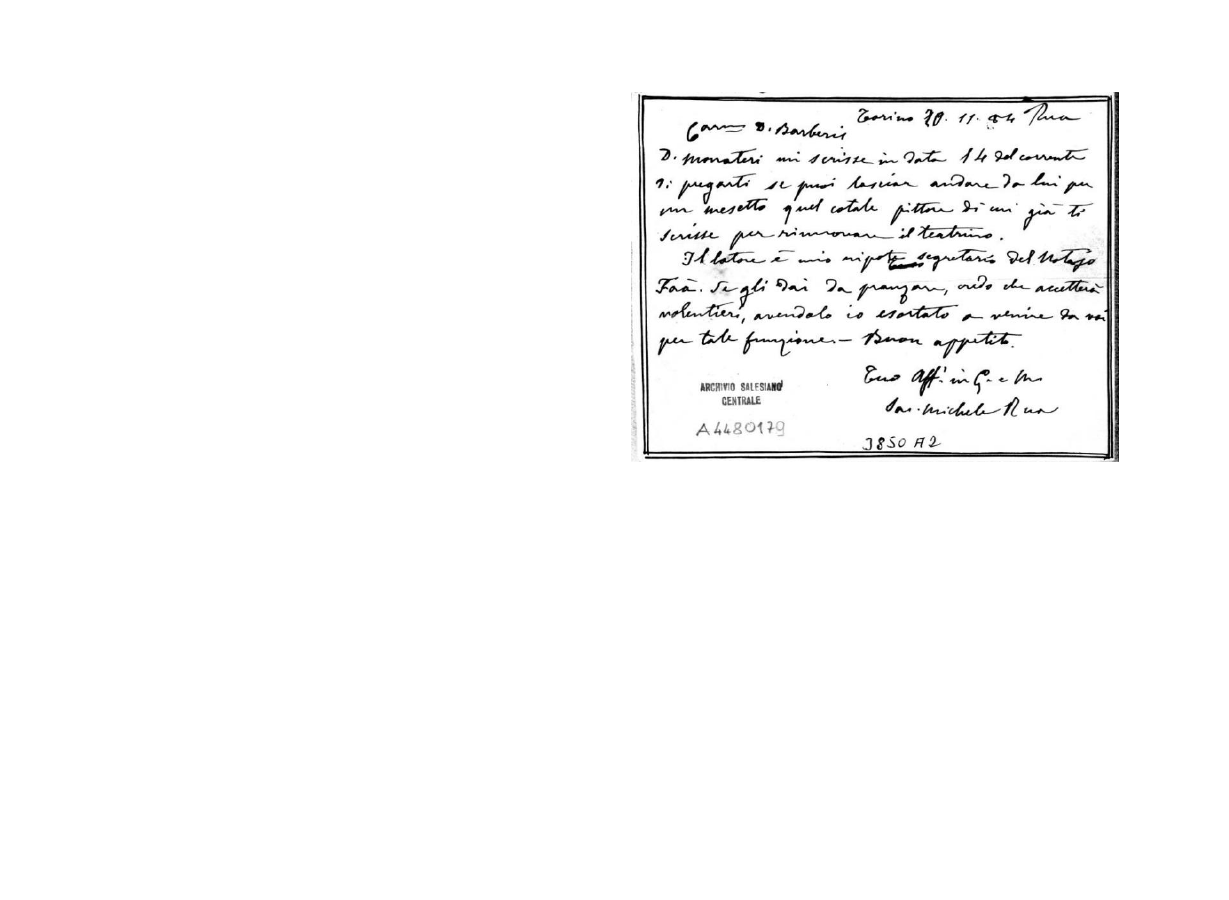 Torino 20. 11. 84 Rua
Carmo D. Barberis
D. Monateri mi scrisse in data 14 del corrente
di pregarti se puoi lasciar andare da lui per
un mesetto quel cotale pittore di cui già ti
scrisse per rinnovare il teatrino.
Il latore è mio nipote segretario del Notajo
Faà. Se gli dai da pranzare, credo che accetterà
volentieri, avendolo io esortato a venire da voi
per tale funzione. — Buon appetito.
Tuo Aff. in G. e M.
Sac. Michele Rua
ARCHIVIO SALESIANO
CENTRALE
A4480179
3850 A2